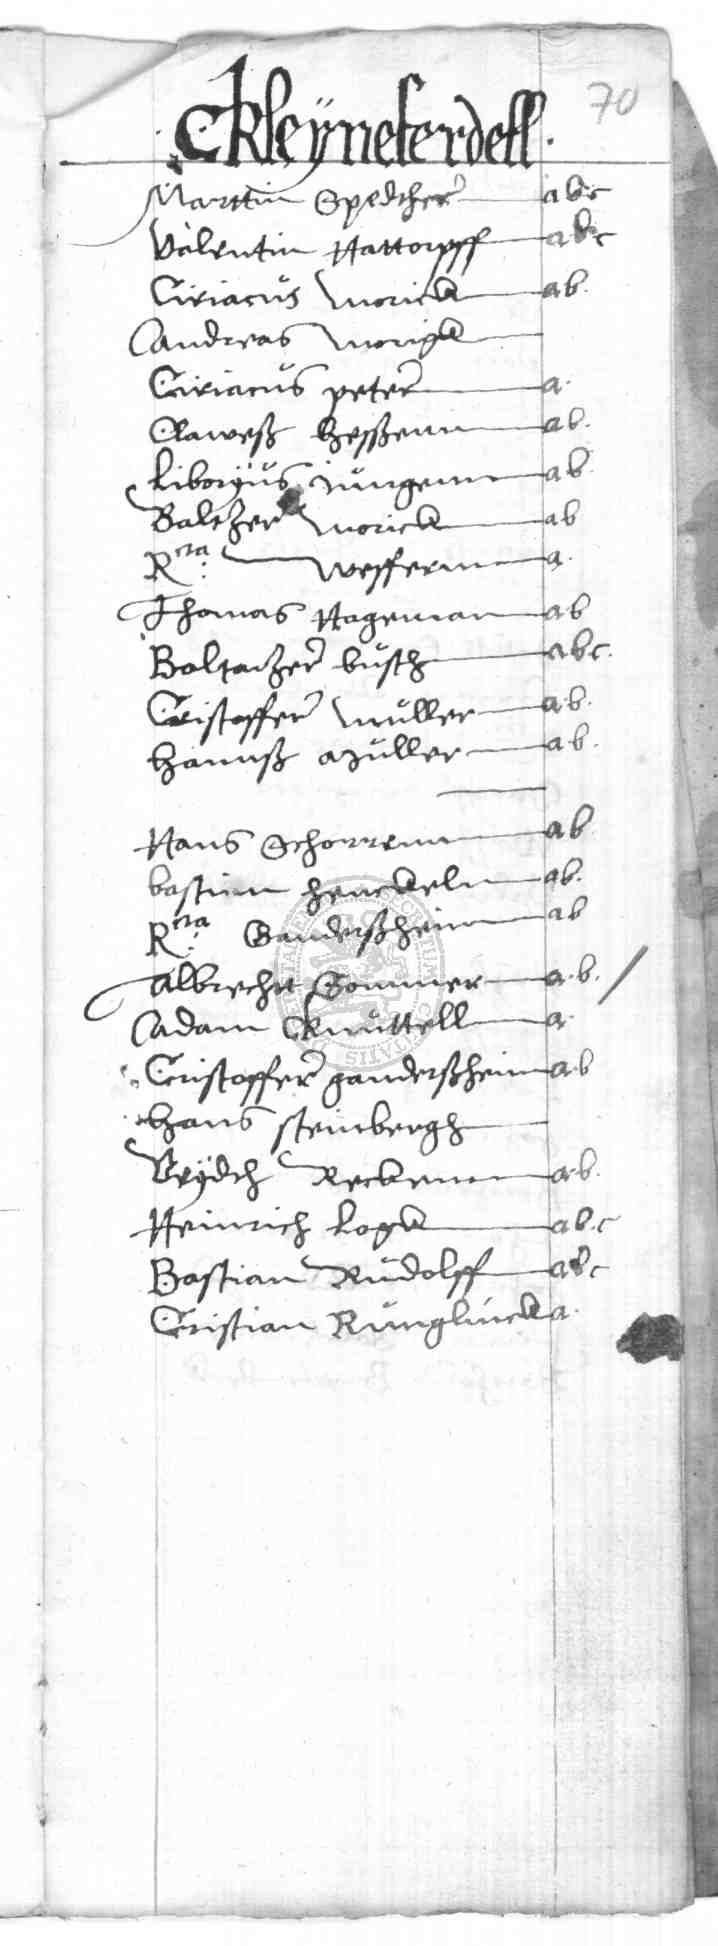 70
Ckleyneferdell.
Marttin Spedther abc
Valentin Hattorpff abc
Ciriacus Morick ab.
Andreas Morigk
Ciriacus peter a.
Claweß heyßenn ab.
Liborÿus Jungenn ab
Baltzer Morick ab
R cta: Weffernn a.
Thomas Hageman ab
Baltatzer busch abc.
Cristoffer Muller ab.
hannß Muller ab.
Hans Schorrenn ab
bastian henckeln ab.
R cta: Ganderßheim ab
Albrecht Sommer a.b.
Adam Cknuttell a
Cristoffer ganderßheim ab
hans steinbergh
Reckenn ab.
Heinrich Logk ab.c
Bastian Rudolff abc
Cristian Runglück a.